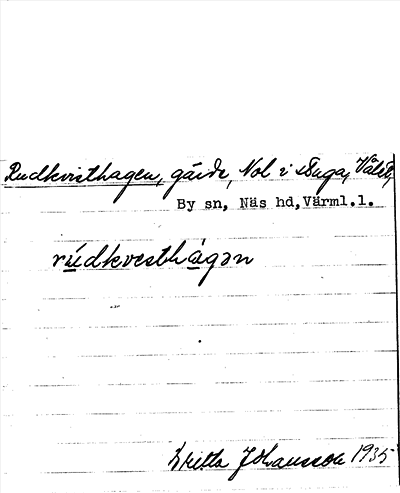 Rudkvisthagen, gärde, Nol i stuga, Vålö,
By sn, Näs hd, Värml.l.
rúdkvesthàgən
Britta Johansson 1935